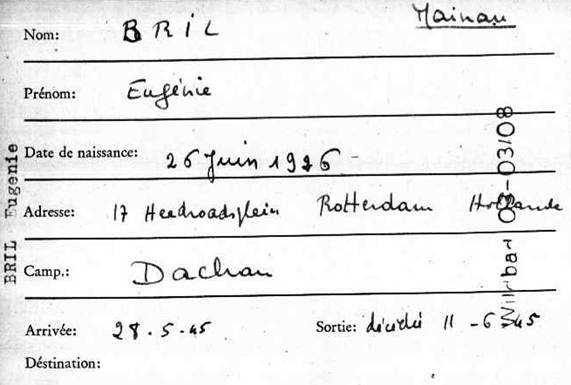 Mainau
Nom: BRIL
Prénom: Eugénie
Date de naissance: 26 Juin 1926
Adresse: 17 Heedroadsplein Rotterdam Hollande
Camp.: Dachau
Arrivée: 28.5.45 Sortie: décédée 11-6-45
Déstination:
BRIL Eugenie
03-03/08